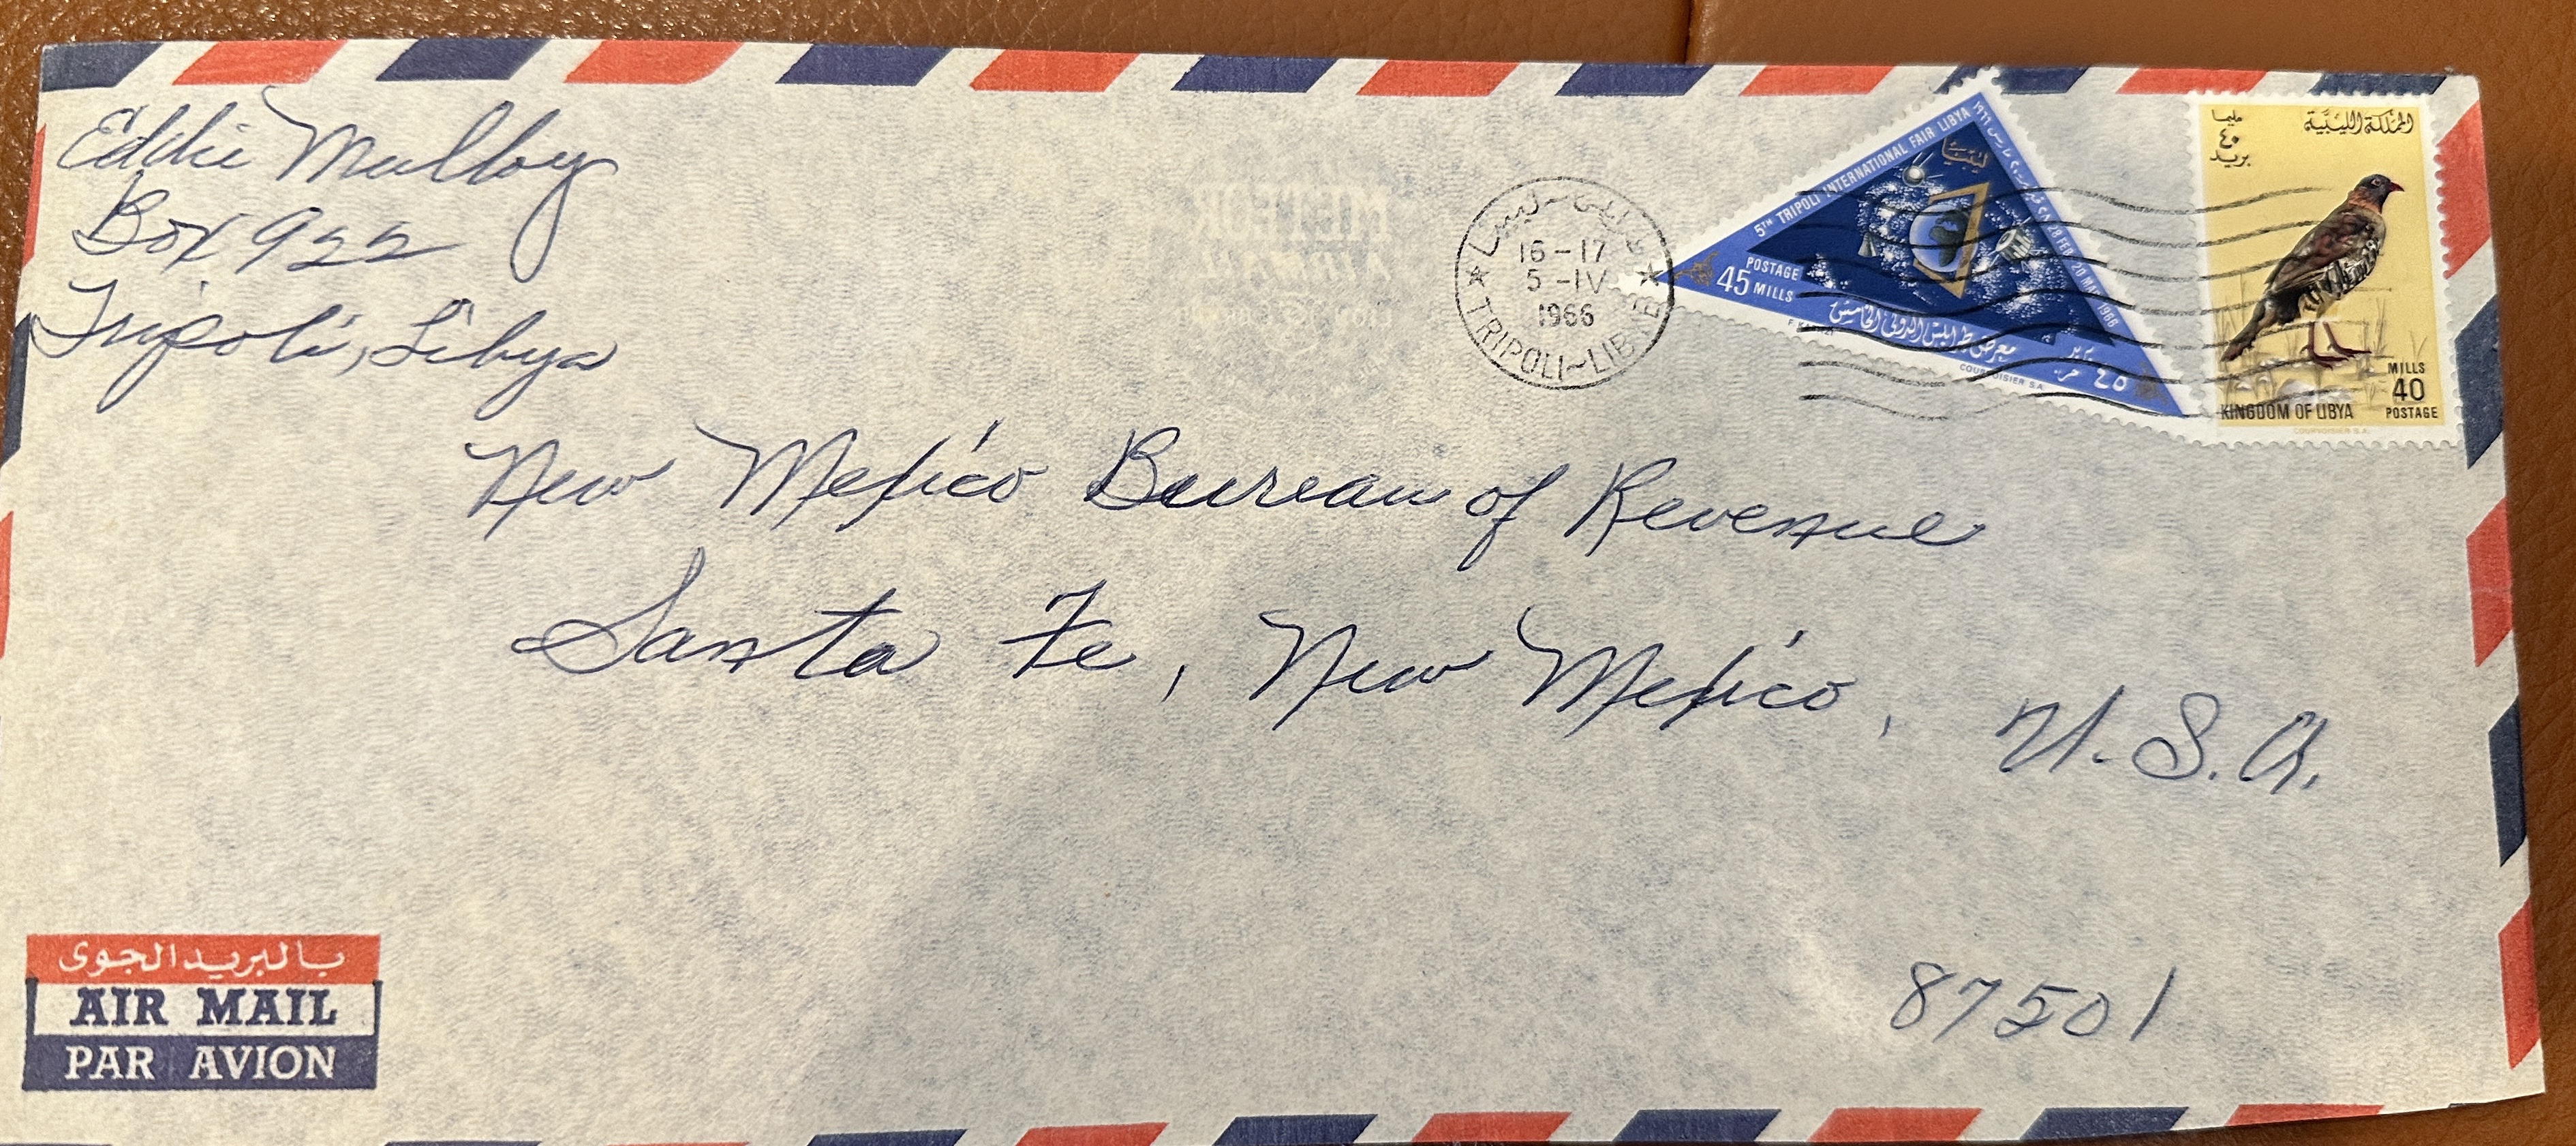 Eddie Mulloy
Box 922
Tripoli, Libya
طرابلس - ليبيا
16-17
5-IV
1966
TRIPOLI-LIBYE
5TH TRIPOLI INTERNATIONAL FAIR LIBYA
28 FEB 20 MAR 1966
ليبيا
POSTAGE
45 MILLS
معرض طرابلس الدولي الخامس
٤٥
COURVOISIER S.A.
المملكة الليبية
مليما
٤٠
بريد
MILLS
40
POSTAGE
KINGDOM OF LIBYA
COURVOISIER S.A.
New Mexico Bureau of Revenue
Santa Fe, New Mexico, U.S.A.
87501
بالبريد الجوى
AIR MAIL
PAR AVION